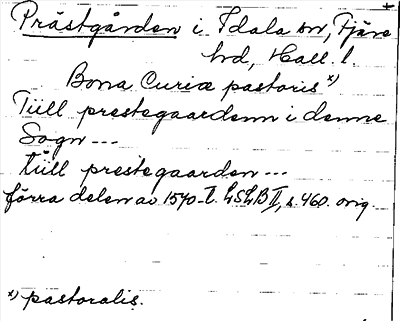 Prästgården i Idala sn, Fjäre
hd, Hall. l.
Bona Curiæ pastoris x)
Tiill prestegaardenn i denne
Sogn ---
tiill prestegaarden ---
förra delen av 1570-t. LSLB II, s. 460. orig.
x) pastoralis.